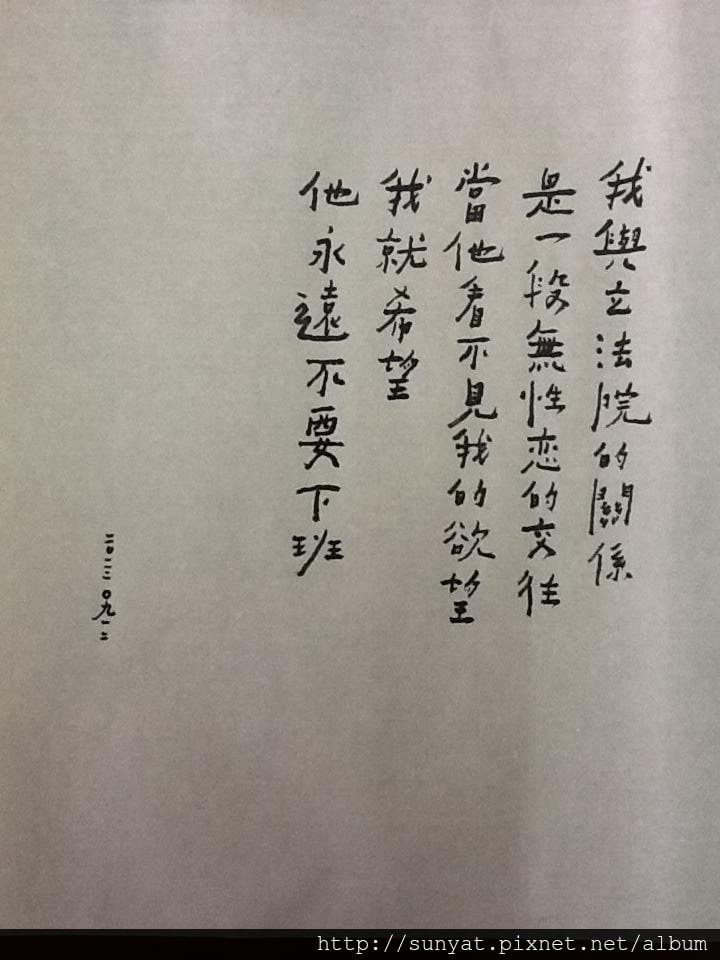 我與立法院的關係
是一段無性恋的交往
當他看不見我的欲望
我就希望
他永遠不要下班
二〇一三 〇九一二
http://sunyat.pixnet.net/album